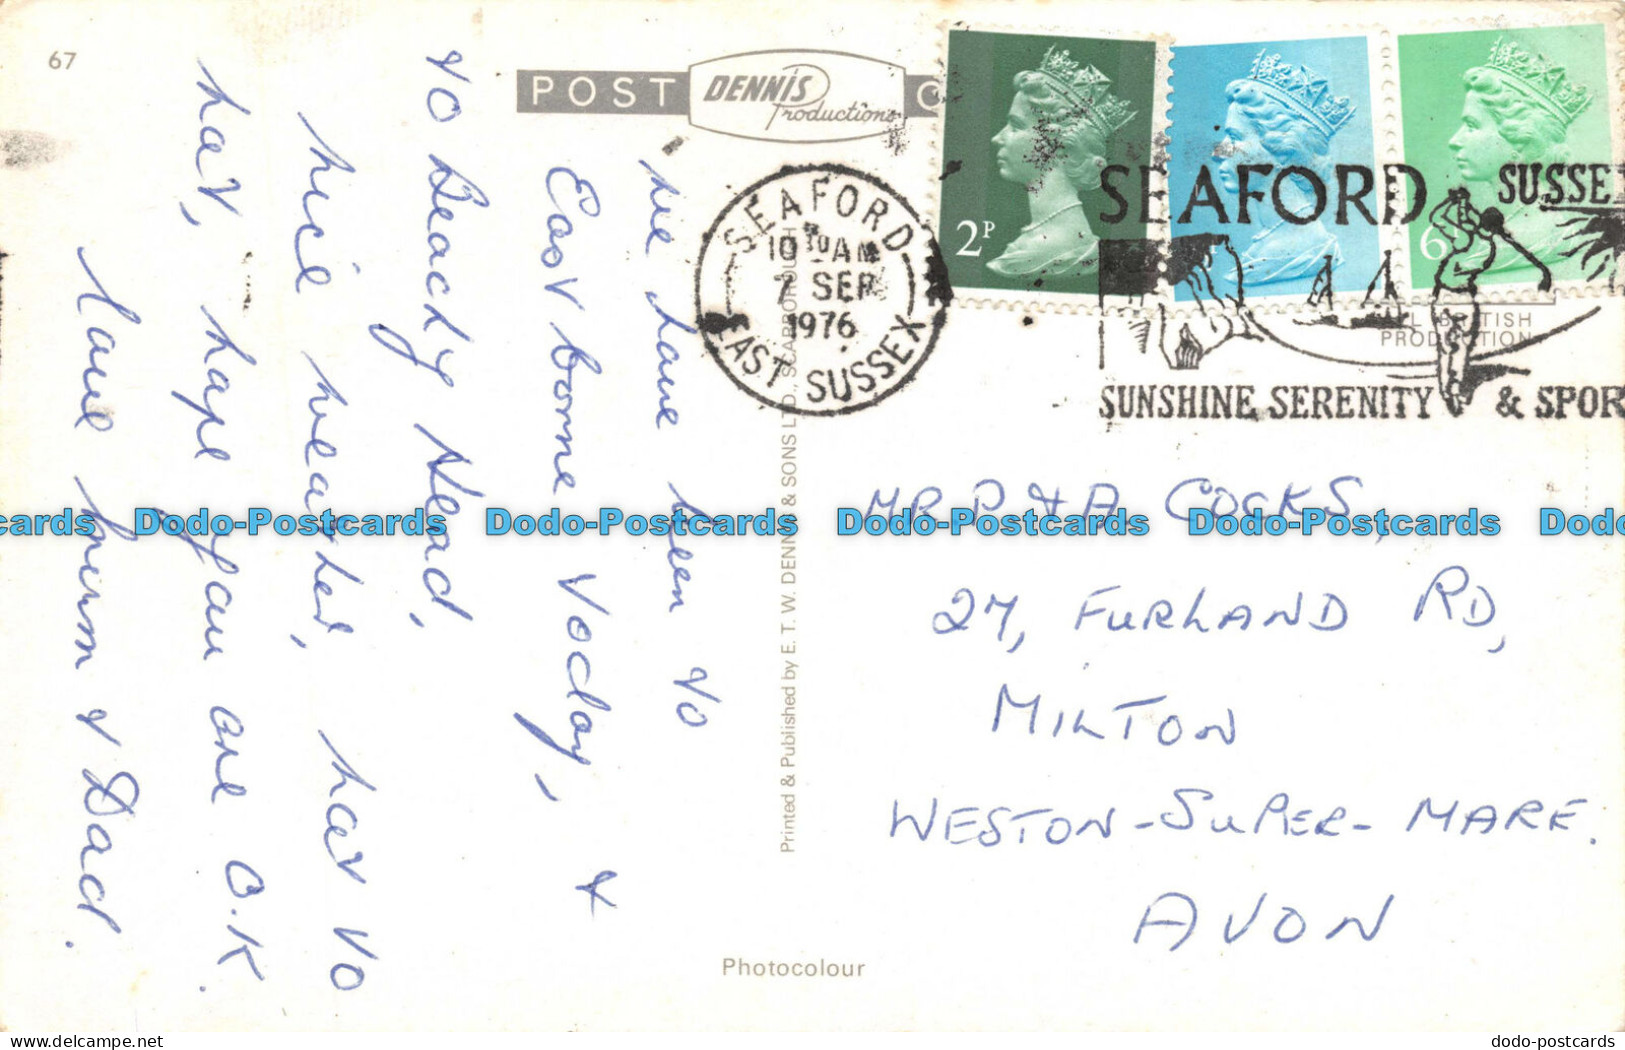 67
POST
DENNIS
Productions
C
SEAFORD
10 30 AM
7 SEP
1976
EAST SUSSEX
2P
6
SEAFORD SUSSE
SUNSHINE SERENITY & SPOR
BRITISH
PRODUCTION
We have been to
Eastborne today, &
to Beachy Head,
nice weather, hot to
hot, hope you are O.K.
love Mum & Dad.
Printed & Published by E. T. W. DENNIS & SONS LTD., SCARBOROUGH
MR P & A COCKS,
27, FURLAND RD,
MILTON
WESTON-SUPER-MARE.
AVON
Photocolour
cards Dodo-Postcards Dodo-Postcards Dodo-Postcards Dodo-Postcards Dodo
www.delcampe.net
dodo-postcards